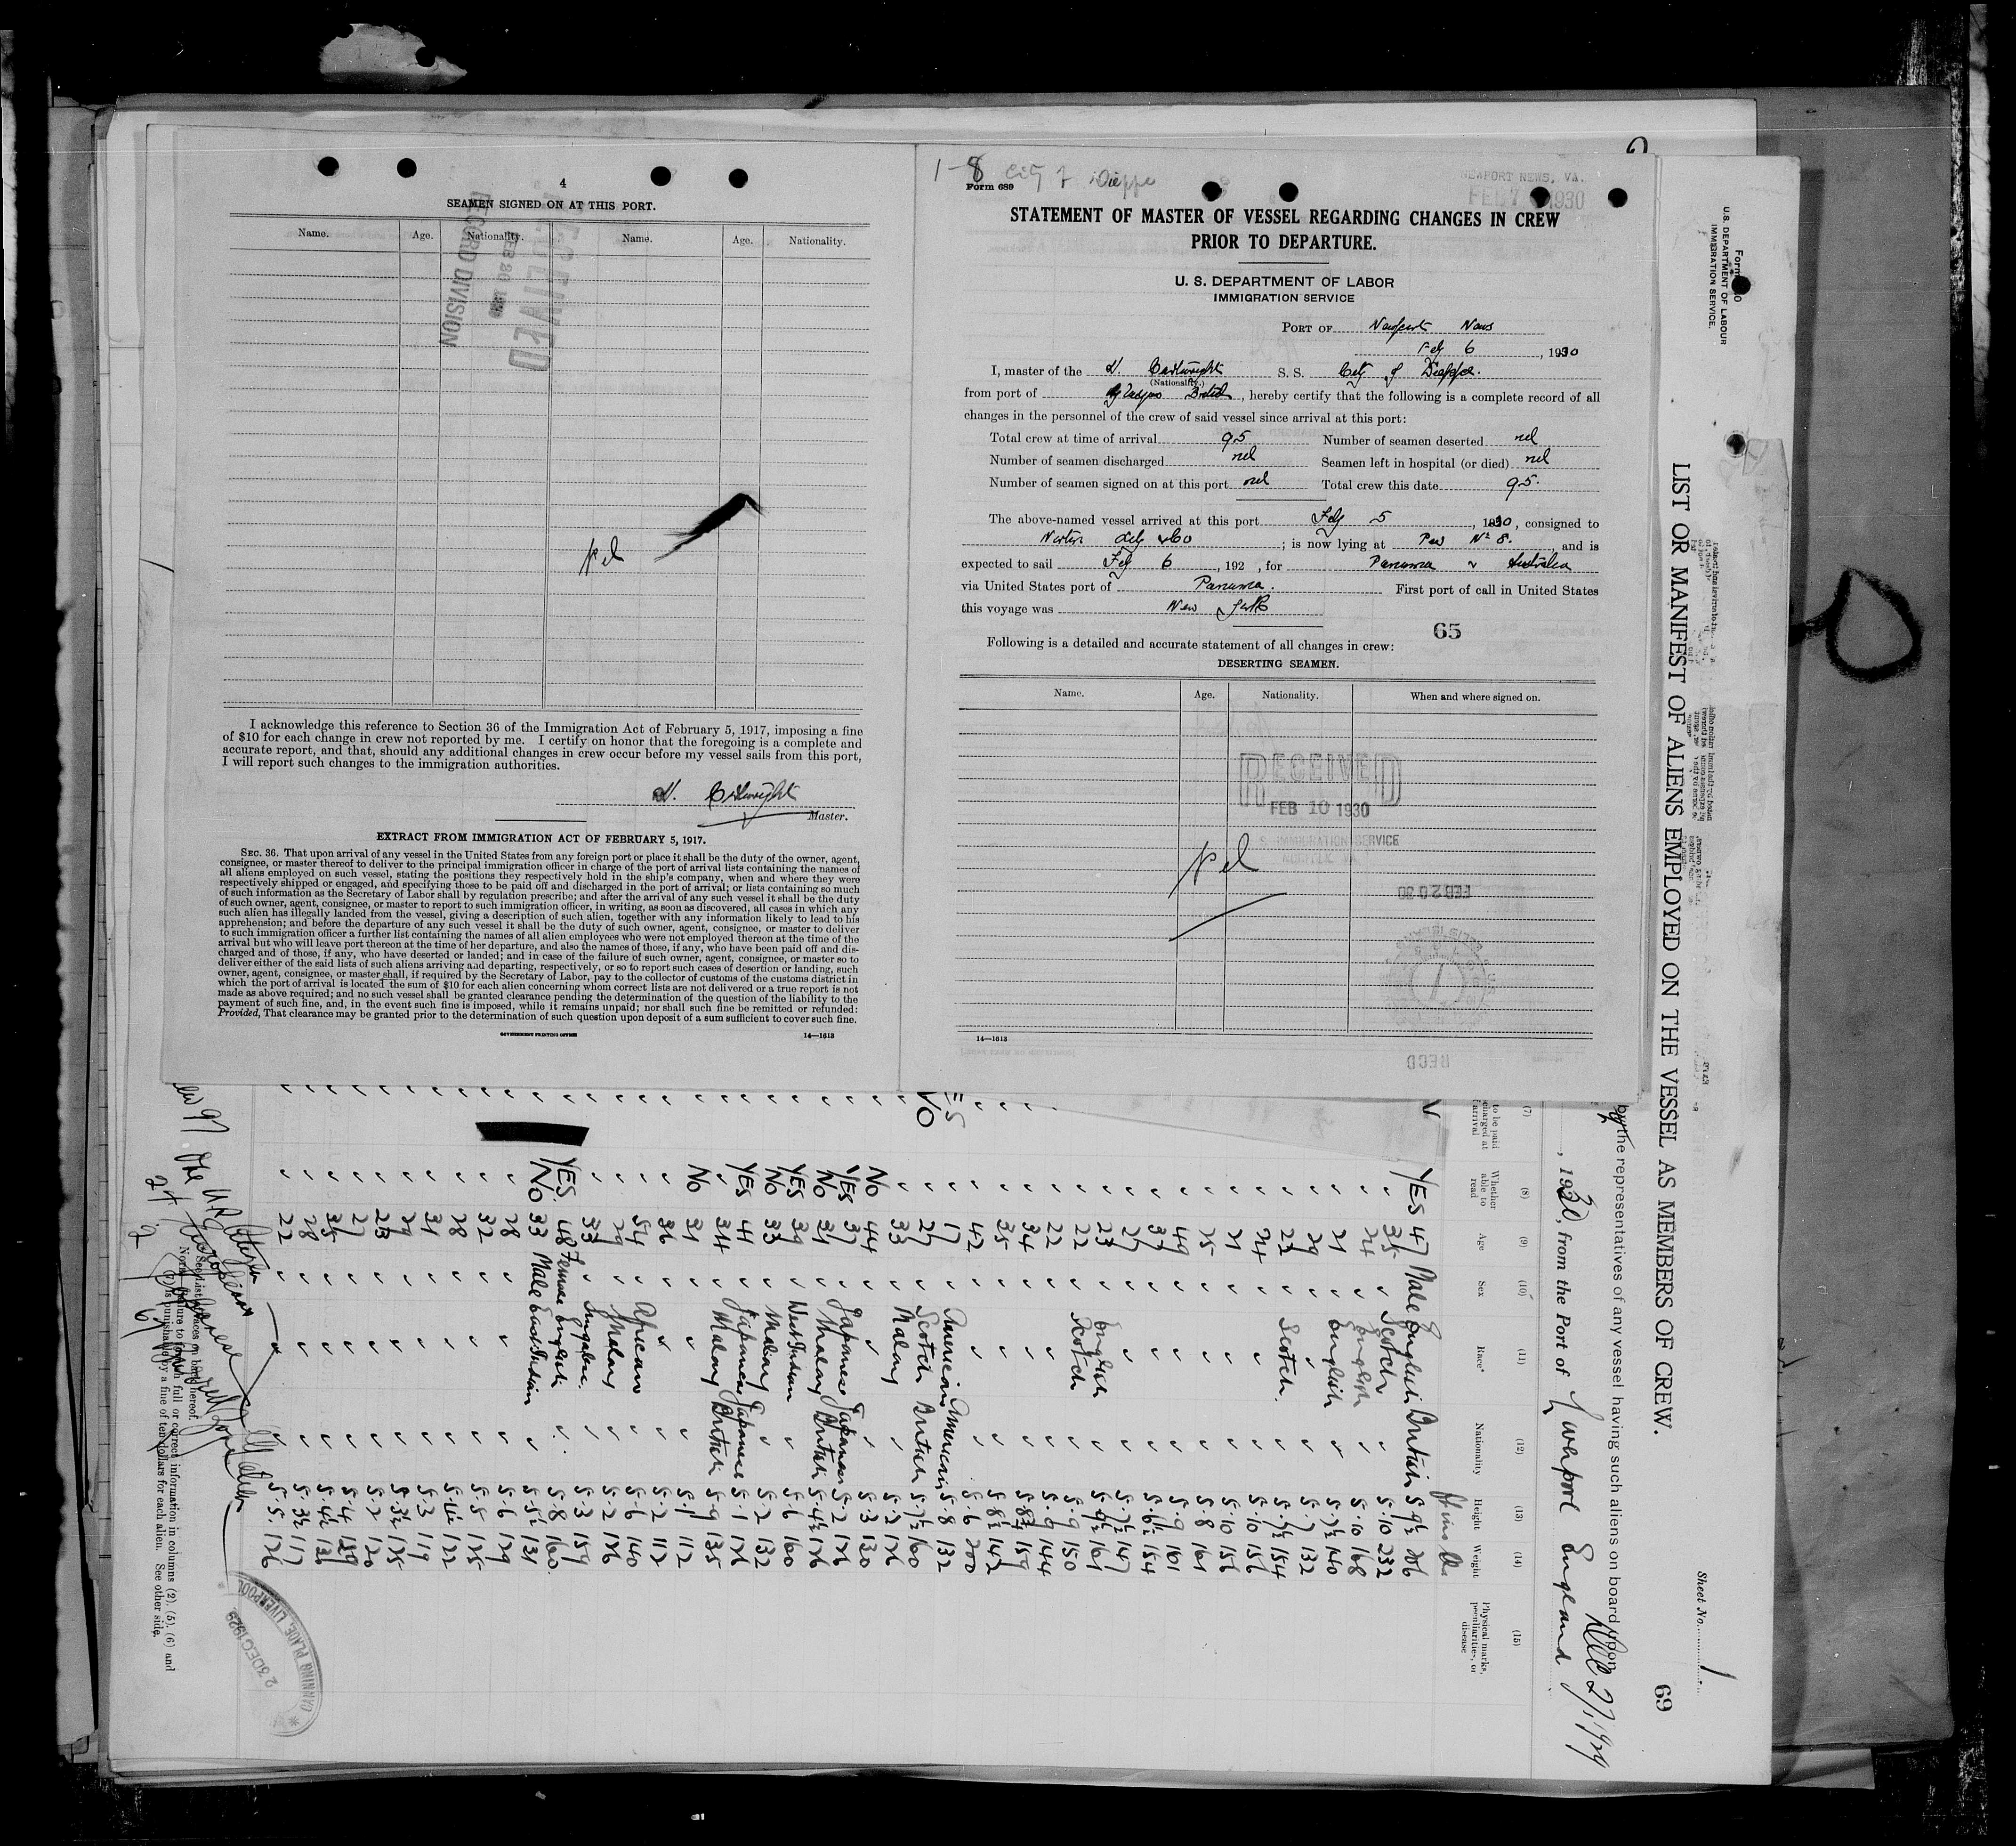 4
SEAMEN SIGNED ON AT THIS PORT.
Name. Age. Nationality. Name. Age. Nationality.
RECEIVED
FEB 20
RECORD DIVISION
I acknowledge this reference to Section 36 of the Immigration Act of February 5, 1917, imposing a fine
of $10 for each change in crew not reported by me. I certify on honor that the foregoing is a complete and
accurate report, and that, should any additional changes in crew occur before my vessel sails from this port,
I will report such changes to the immigration authorities.
Cartwright
Master.
EXTRACT FROM IMMIGRATION ACT OF FEBRUARY 5, 1917.
SEC. 36. That upon arrival of any vessel in the United States from any foreign port or place it shall be the duty of the owner, agent,
consignee, or master thereof to deliver to the principal immigration officer in charge of the port of arrival lists containing the names of
all aliens employed on such vessel, stating the positions they respectively hold in the ship's company, when and where they were
respectively shipped or engaged, and specifying those to be paid off and discharged in the port of arrival; or lists containing so much
of such information as the Secretary of Labor shall by regulation prescribe; and after the arrival of any such vessel it shall be the duty
of such owner, agent, consignee, or master to report to such immigration officer, in writing, as soon as discovered, all cases in which any
such alien has illegally landed from the vessel, giving a description of such alien, together with any information likely to lead to his
apprehension; and before the departure of any such vessel it shall be the duty of such owner, agent, consignee, or master to deliver
to such immigration officer a further list containing the names of all alien employees who were not employed thereon at the time of the
arrival but who will leave port thereon at the time of her departure, and also the names of those, if any, who have been paid off and dis-
charged and of those, if any, who have deserted or landed; and in case of the failure of such owner, agent, consignee, or master so to
deliver either of the said lists of such aliens arriving and departing, respectively, or so to report such cases of desertion or landing, such
owner, agent, consignee, or master shall, if required by the Secretary of Labor, pay to the collector of customs of the customs district in
which the port of arrival is located the sum of $10 for each alien concerning whom correct lists are not delivered or a true report is not
made as above required; and no such vessel shall be granted clearance pending the determination of the question of the liability to the
payment of such fine, and, in the event such fine is imposed, while it remains unpaid; nor shall such fine be remitted or refunded:
Provided, That clearance may be granted prior to the determination of such question upon deposit of a sum sufficient to cover such fine.
GOVERNMENT PRINTING OFFICE 14—1613
1-8 City of Dieppe
Form 689
NEWPORT NEWS, VA.
FEB 7 1930
STATEMENT OF MASTER OF VESSEL REGARDING CHANGES IN CREW
PRIOR TO DEPARTURE.
U. S. DEPARTMENT OF LABOR
IMMIGRATION SERVICE
PORT OF Newport News
Feb 6, 1930
I, master of the Cartwright S. S. City of Dieppe.
(Nationality.)
from port of Glasgow British, hereby certify that the following is a complete record of all
changes in the personnel of the crew of said vessel since arrival at this port:
Total crew at time of arrival 95 Number of seamen deserted nil
Number of seamen discharged nil Seamen left in hospital (or died) nil
Number of seamen signed on at this port nil Total crew this date 95.
The above-named vessel arrived at this port Feb 5, 1930, consigned to
Norton Lilly & Co; is now lying at Pier No 8. and is
expected to sail Feb 6, 192 , for Panama & Australia
via United States port of Panama. First port of call in United States
this voyage was New York
65
Following is a detailed and accurate statement of all changes in crew:
DESERTING SEAMEN.
Name. Age. Nationality. When and where signed on.
RECEIVED
FEB 10 1930
IMMIGRATION SERVICE
NORFOLK VA
Nil
FEB 20 30
RECD
14—1613
U.S. DEPARTMENT OF LABOUR
IMMIGRATION SERVICE.
LIST OR MANIFEST OF ALIENS EMPLOYED ON THE VESSEL AS MEMBERS OF CREW.
69
Sheet No. 1
the representatives of any vessel having such aliens on board upon
, 1930, from the Port of Liverpool England Dec 27, 1929
(7) (8) (9) (10) (11) (12) (13) (14) (15)
Whether able to read Age Sex Race* Nationality Height Weight Physical marks, peculiarities, or disease
YES 47 Male English British 5.9½ 206
35 Scotch 5.10 232
24 English 5.10 168
21 English 5.7½ 140
29 5.7 132
22 Scotch 5.7½ 154
24 5.10 156
21 5.10 156
25 5.8 161
49 5.9 161
5.6½ 154
27 5.7½ 147
23 English 161
22 Scotch 5.9 150
22 5.9 144
34 159
35 5.8½ 147
42 5.6 200
17 American American 5.8 132
Scotch British 5.7½ 160
33 Malay 5.2 126
NO 44 5.3 130
YES 37 Japanese Japanese 5.2 126
NO 31 Malay British 5.4½ 126
YES 39 West Indian 5.6 160
NO 33 Malay 5.2 132
YES 41 Japanese Japanese 5.1 126
34 Malay British 5.9 135
NO 31 5.1 112
36 5.2 112
54 African 5.6 140
29 Malay 5.2 126
33 5.3 159
YES 48 Female English 5.8 160
NO 33 Male East Indian 5.5½ 131
28 5.6 129
32 5.5 125
28 122
31 5.3 119
29 5.3½ 125
23 5.2 120
27 5.4 139
35 5.4½
28 5.3½ 117
22 5.5 126
See list of races on back hereof.
CANNING PLACE, LIVERPOOL
23 DEC 1929